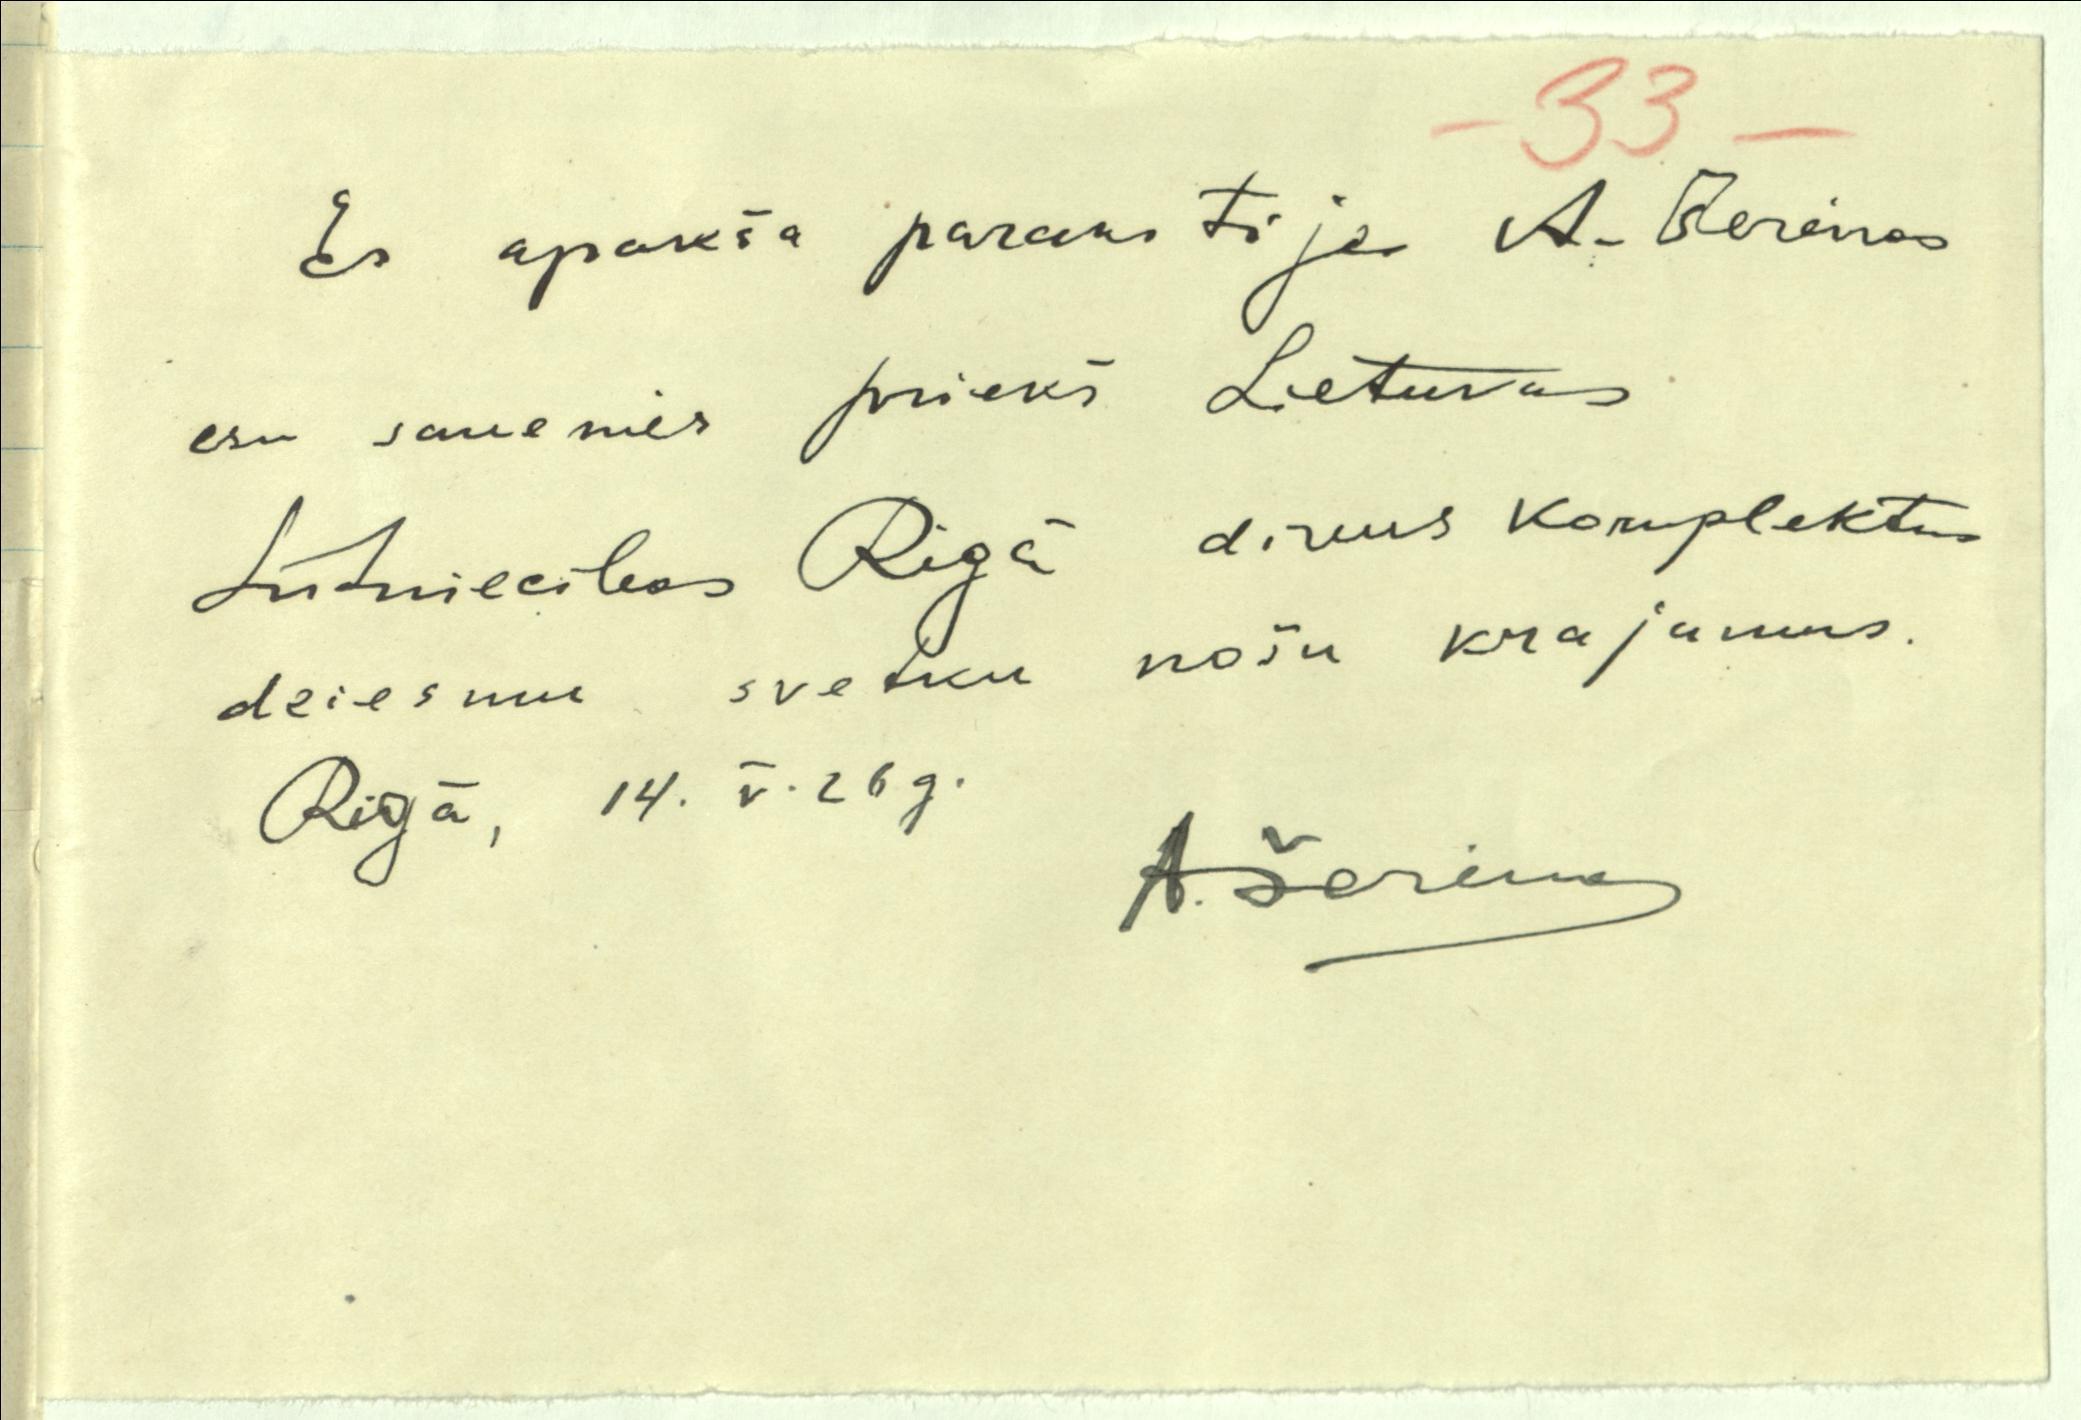 - 33 -
Es apakša parakstijes A. Šerinas
esu saņemies priekš Lietuvas
Sūtniecības Rigā divus komplektus
dziesmu svetku nošu krajumus.
Rigā, 14. V. 26 g.
A. Šerinas